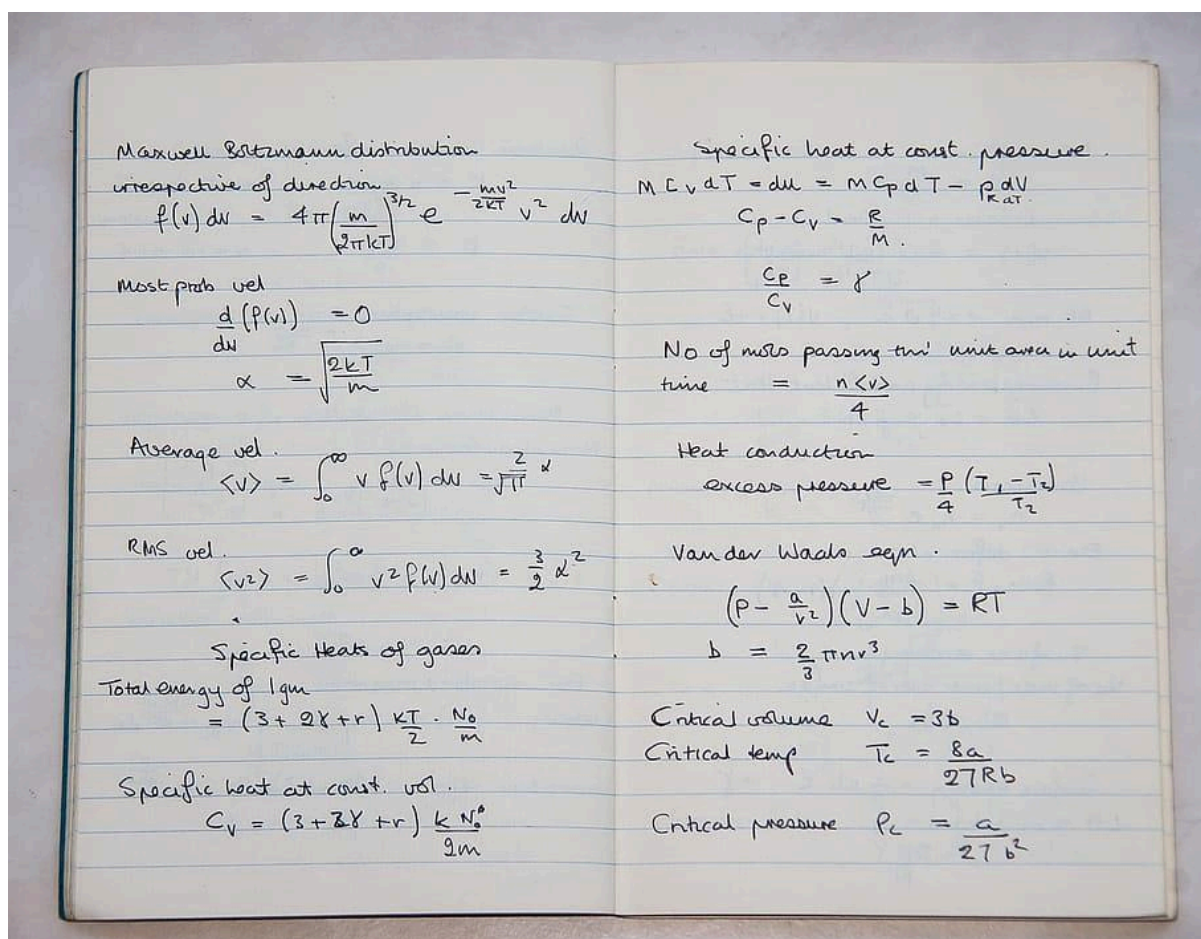 Maxwell Boltzmann distribution
irrespective of direction
f(v) dv = 4π(m/2πkT)^3/2 e^-mv²/2kT v² dv
Most prob vel
d/dv (f(v)) = 0
α = √2kT/m
Average vel.
<v> = ∫₀^∞ v f(v) dv = 2/√π α
RMS vel.
<v²> = ∫₀^∞ v² f(v) dv = 3/2 α²
Specific Heats of gases
Total energy of 1 gm
= (3 + 2γ + r) kT/2 · N₀/m
Specific heat at const. vol.
Cᵥ = (3 + 2γ + r) k N₀/2m
Specific heat at const. pressure.
M Cᵥ dT = du = M Cₚ dT - p dV
R dT.
Cₚ - Cᵥ = R/M.
Cₚ/Cᵥ = γ
No of mols passing thro' unit area in unit
time = n<v>/4
Heat conduction
excess pressure = P/4 (T₁ - T₂)/T₂
Van der Waals eqn.
(P - a/v²)(V - b) = RT
b = 2/3 πnr³
Critical volume Vc = 3b
Critical temp Tc = 8a/27Rb
Critical pressure Pc = a/27b²